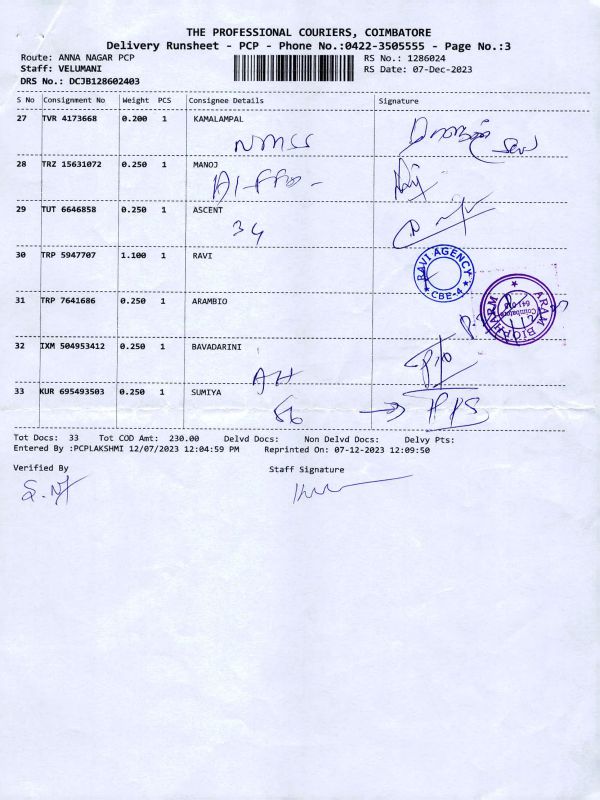 THE PROFESSIONAL COURIERS, COIMBATORE
Delivery Runsheet - PCP - Phone No.:0422-3505555 - Page No.:3
Route: ANNA NAGAR PCP RS No.: 1286024
Staff: VELUMANI RS Date: 07-Dec-2023
DRS No.: DCJB128602403
S No Consignment No Weight PCS Consignee Details Signature
27 TVR 4173668 0.200 1 KAMALAMPAL
28 TRZ 15631072 0.250 1 MANOJ
29 TUT 6646858 0.250 1 ASCENT
34
30 TRP 5947707 1.100 1 RAVI
RAVI AGENCY
CBE-4
31 TRP 7641686 0.250 1 ARAMBIO
ARAM BIOPHARM
Coimbatore
32 IXM 504953412 0.250 1 BAVADARINI
AH
33 KUR 695493503 0.250 1 SUMIYA
Tot Docs: 33 Tot COD Amt: 230.00 Delvd Docs: Non Delvd Docs: Delvy Pts:
Entered By :PCPLAKSHMI 12/07/2023 12:04:59 PM Reprinted On: 07-12-2023 12:09:50
Verified By Staff Signature